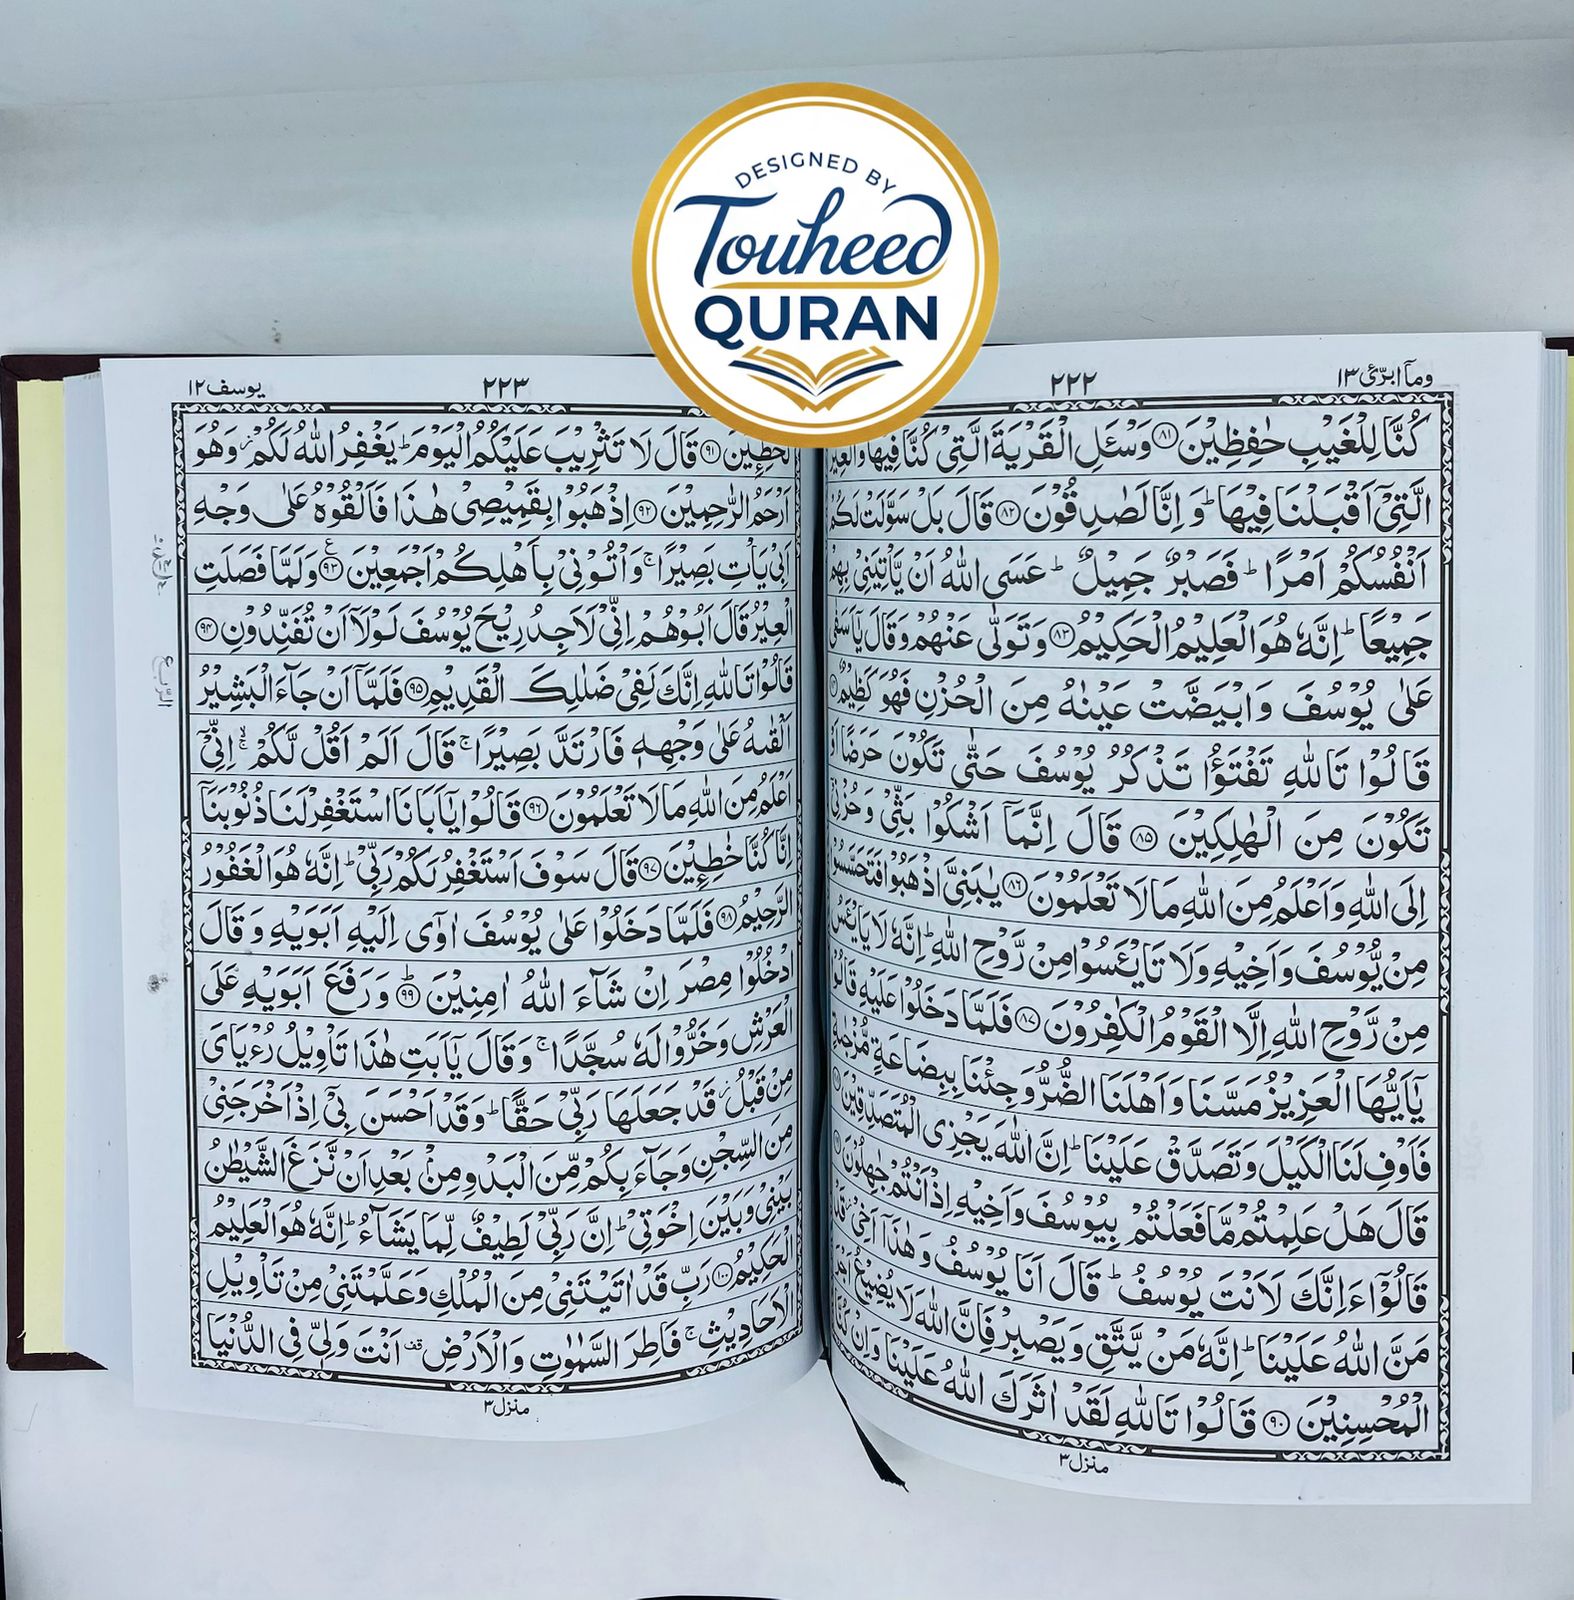 DESIGNED BY
Touheed
QURAN
ومآ ابرّئ ١٣
٢٢٢
كُنَّا لِلْغَيْبِ حٰفِظِيْنَ ﴿٨١﴾ وَسْـَٔلِ الْقَرْيَةَ الَّتِيْ كُنَّا فِيْهَا وَالْعِيْرَ
الَّتِيْٓ اَقْبَلْنَا فِيْهَا ؕ وَاِنَّا لَصٰدِقُوْنَ ﴿٨٢﴾ قَالَ بَلْ سَوَّلَتْ لَكُمْ
اَنْفُسُكُمْ اَمْرًا ؕ فَصَبْرٌ جَمِيْلٌ ؕ عَسَى اللّٰهُ اَنْ يَّاْتِيَنِيْ بِهِمْ
جَمِيْعًا ؕ اِنَّهٗ هُوَ الْعَلِيْمُ الْحَكِيْمُ ﴿٨٣﴾ وَتَوَلّٰى عَنْهُمْ وَقَالَ يٰٓاَسَفٰى
عَلٰى يُوْسُفَ وَابْيَضَّتْ عَيْنٰهُ مِنَ الْحُزْنِ فَهُوَ كَظِيْمٌ
قَالُوْا تَاللّٰهِ تَفْتَؤُا تَذْكُرُ يُوْسُفَ حَتّٰى تَكُوْنَ حَرَضًا اَوْ
تَكُوْنَ مِنَ الْهٰلِكِيْنَ ﴿٨٥﴾ قَالَ اِنَّمَآ اَشْكُوْا بَثِّيْ وَحُزْنِيْٓ
اِلَى اللّٰهِ وَاَعْلَمُ مِنَ اللّٰهِ مَا لَا تَعْلَمُوْنَ ﴿٨٦﴾ يٰبَنِيَّ اذْهَبُوْا فَتَحَسَّسُوْا
مِنْ يُّوْسُفَ وَاَخِيْهِ وَلَا تَايْـَٔسُوْا مِنْ رَّوْحِ اللّٰهِ ؕ اِنَّهٗ لَا يَايْـَٔسُ
مِنْ رَّوْحِ اللّٰهِ اِلَّا الْقَوْمُ الْكٰفِرُوْنَ ﴿٨٧﴾ فَلَمَّا دَخَلُوْا عَلَيْهِ قَالُوْا
يٰٓاَيُّهَا الْعَزِيْزُ مَسَّنَا وَاَهْلَنَا الضُّرُّ وَجِئْنَا بِبِضَاعَةٍ مُّزْجٰىةٍ
فَاَوْفِ لَنَا الْكَيْلَ وَتَصَدَّقْ عَلَيْنَا ؕ اِنَّ اللّٰهَ يَجْزِى الْمُتَصَدِّقِيْنَ
قَالَ هَلْ عَلِمْتُمْ مَّا فَعَلْتُمْ بِيُوْسُفَ وَاَخِيْهِ اِذْ اَنْتُمْ جٰهِلُوْنَ
قَالُوْٓا ءَاِنَّكَ لَاَنْتَ يُوْسُفُ ؕ قَالَ اَنَا يُوْسُفُ وَهٰذَآ اَخِيْ ز قَدْ
مَنَّ اللّٰهُ عَلَيْنَا ؕ اِنَّهٗ مَنْ يَّتَّقِ وَيَصْبِرْ فَاِنَّ اللّٰهَ لَا يُضِيْعُ اَجْرَ
الْمُحْسِنِيْنَ ﴿٩٠﴾ قَالُوْا تَاللّٰهِ لَقَدْ اٰثَرَكَ اللّٰهُ عَلَيْنَا وَاِنْ كُنَّا
منزل ٣
يوسف ١٢
٢٢٣
لَخٰطِـِٕيْنَ ﴿٩١﴾ قَالَ لَا تَثْرِيْبَ عَلَيْكُمُ الْيَوْمَ ؕ يَغْفِرُ اللّٰهُ لَكُمْ ز وَهُوَ
اَرْحَمُ الرّٰحِمِيْنَ ﴿٩٢﴾ اِذْهَبُوْا بِقَمِيْصِيْ هٰذَا فَاَلْقُوْهُ عَلٰى وَجْهِ
اَبِيْ يَاْتِ بَصِيْرًا ۚ وَاْتُوْنِيْ بِاَهْلِكُمْ اَجْمَعِيْنَ ﴿٩٣﴾ وَلَمَّا فَصَلَتِ
الْعِيْرُ قَالَ اَبُوْهُمْ اِنِّيْ لَاَجِدُ رِيْحَ يُوْسُفَ لَوْلَآ اَنْ تُفَنِّدُوْنِ ﴿٩٤﴾
قَالُوْا تَاللّٰهِ اِنَّكَ لَفِيْ ضَلٰلِكَ الْقَدِيْمِ ﴿٩٥﴾ فَلَمَّآ اَنْ جَآءَ الْبَشِيْرُ
اَلْقٰىهُ عَلٰى وَجْهِهٖ فَارْتَدَّ بَصِيْرًا ۚ قَالَ اَلَمْ اَقُلْ لَّكُمْ ۙۚ اِنِّيْٓ
اَعْلَمُ مِنَ اللّٰهِ مَا لَا تَعْلَمُوْنَ ﴿٩٦﴾ قَالُوْا يٰٓاَبَانَا اسْتَغْفِرْ لَنَا ذُنُوْبَنَآ
اِنَّا كُنَّا خٰطِـِٕيْنَ ﴿٩٧﴾ قَالَ سَوْفَ اَسْتَغْفِرُ لَكُمْ رَبِّيْ ؕ اِنَّهٗ هُوَ الْغَفُوْرُ
الرَّحِيْمُ ﴿٩٨﴾ فَلَمَّا دَخَلُوْا عَلٰى يُوْسُفَ اٰوٰٓى اِلَيْهِ اَبَوَيْهِ وَقَالَ
ادْخُلُوْا مِصْرَ اِنْ شَآءَ اللّٰهُ اٰمِنِيْنَ ؕ ﴿٩٩﴾ وَرَفَعَ اَبَوَيْهِ عَلَى
الْعَرْشِ وَخَرُّوْا لَهٗ سُجَّدًا ۚ وَقَالَ يٰٓاَبَتِ هٰذَا تَاْوِيْلُ رُءْيَايَ
مِنْ قَبْلُ ز قَدْ جَعَلَهَا رَبِّيْ حَقًّا ؕ وَقَدْ اَحْسَنَ بِيْٓ اِذْ اَخْرَجَنِيْ
مِنَ السِّجْنِ وَجَآءَ بِكُمْ مِّنَ الْبَدْوِ مِنْۢ بَعْدِ اَنْ نَّزَغَ الشَّيْطٰنُ
بَيْنِيْ وَبَيْنَ اِخْوَتِيْ ؕ اِنَّ رَبِّيْ لَطِيْفٌ لِّمَا يَشَآءُ ؕ اِنَّهٗ هُوَ الْعَلِيْمُ
الْحَكِيْمُ ﴿١٠٠﴾ رَبِّ قَدْ اٰتَيْتَنِيْ مِنَ الْمُلْكِ وَعَلَّمْتَنِيْ مِنْ تَاْوِيْلِ
الْاَحَادِيْثِ ۚ فَاطِرَ السَّمٰوٰتِ وَالْاَرْضِ قف اَنْتَ وَلِيّٖ فِى الدُّنْيَا
منزل ٣
الرّبع